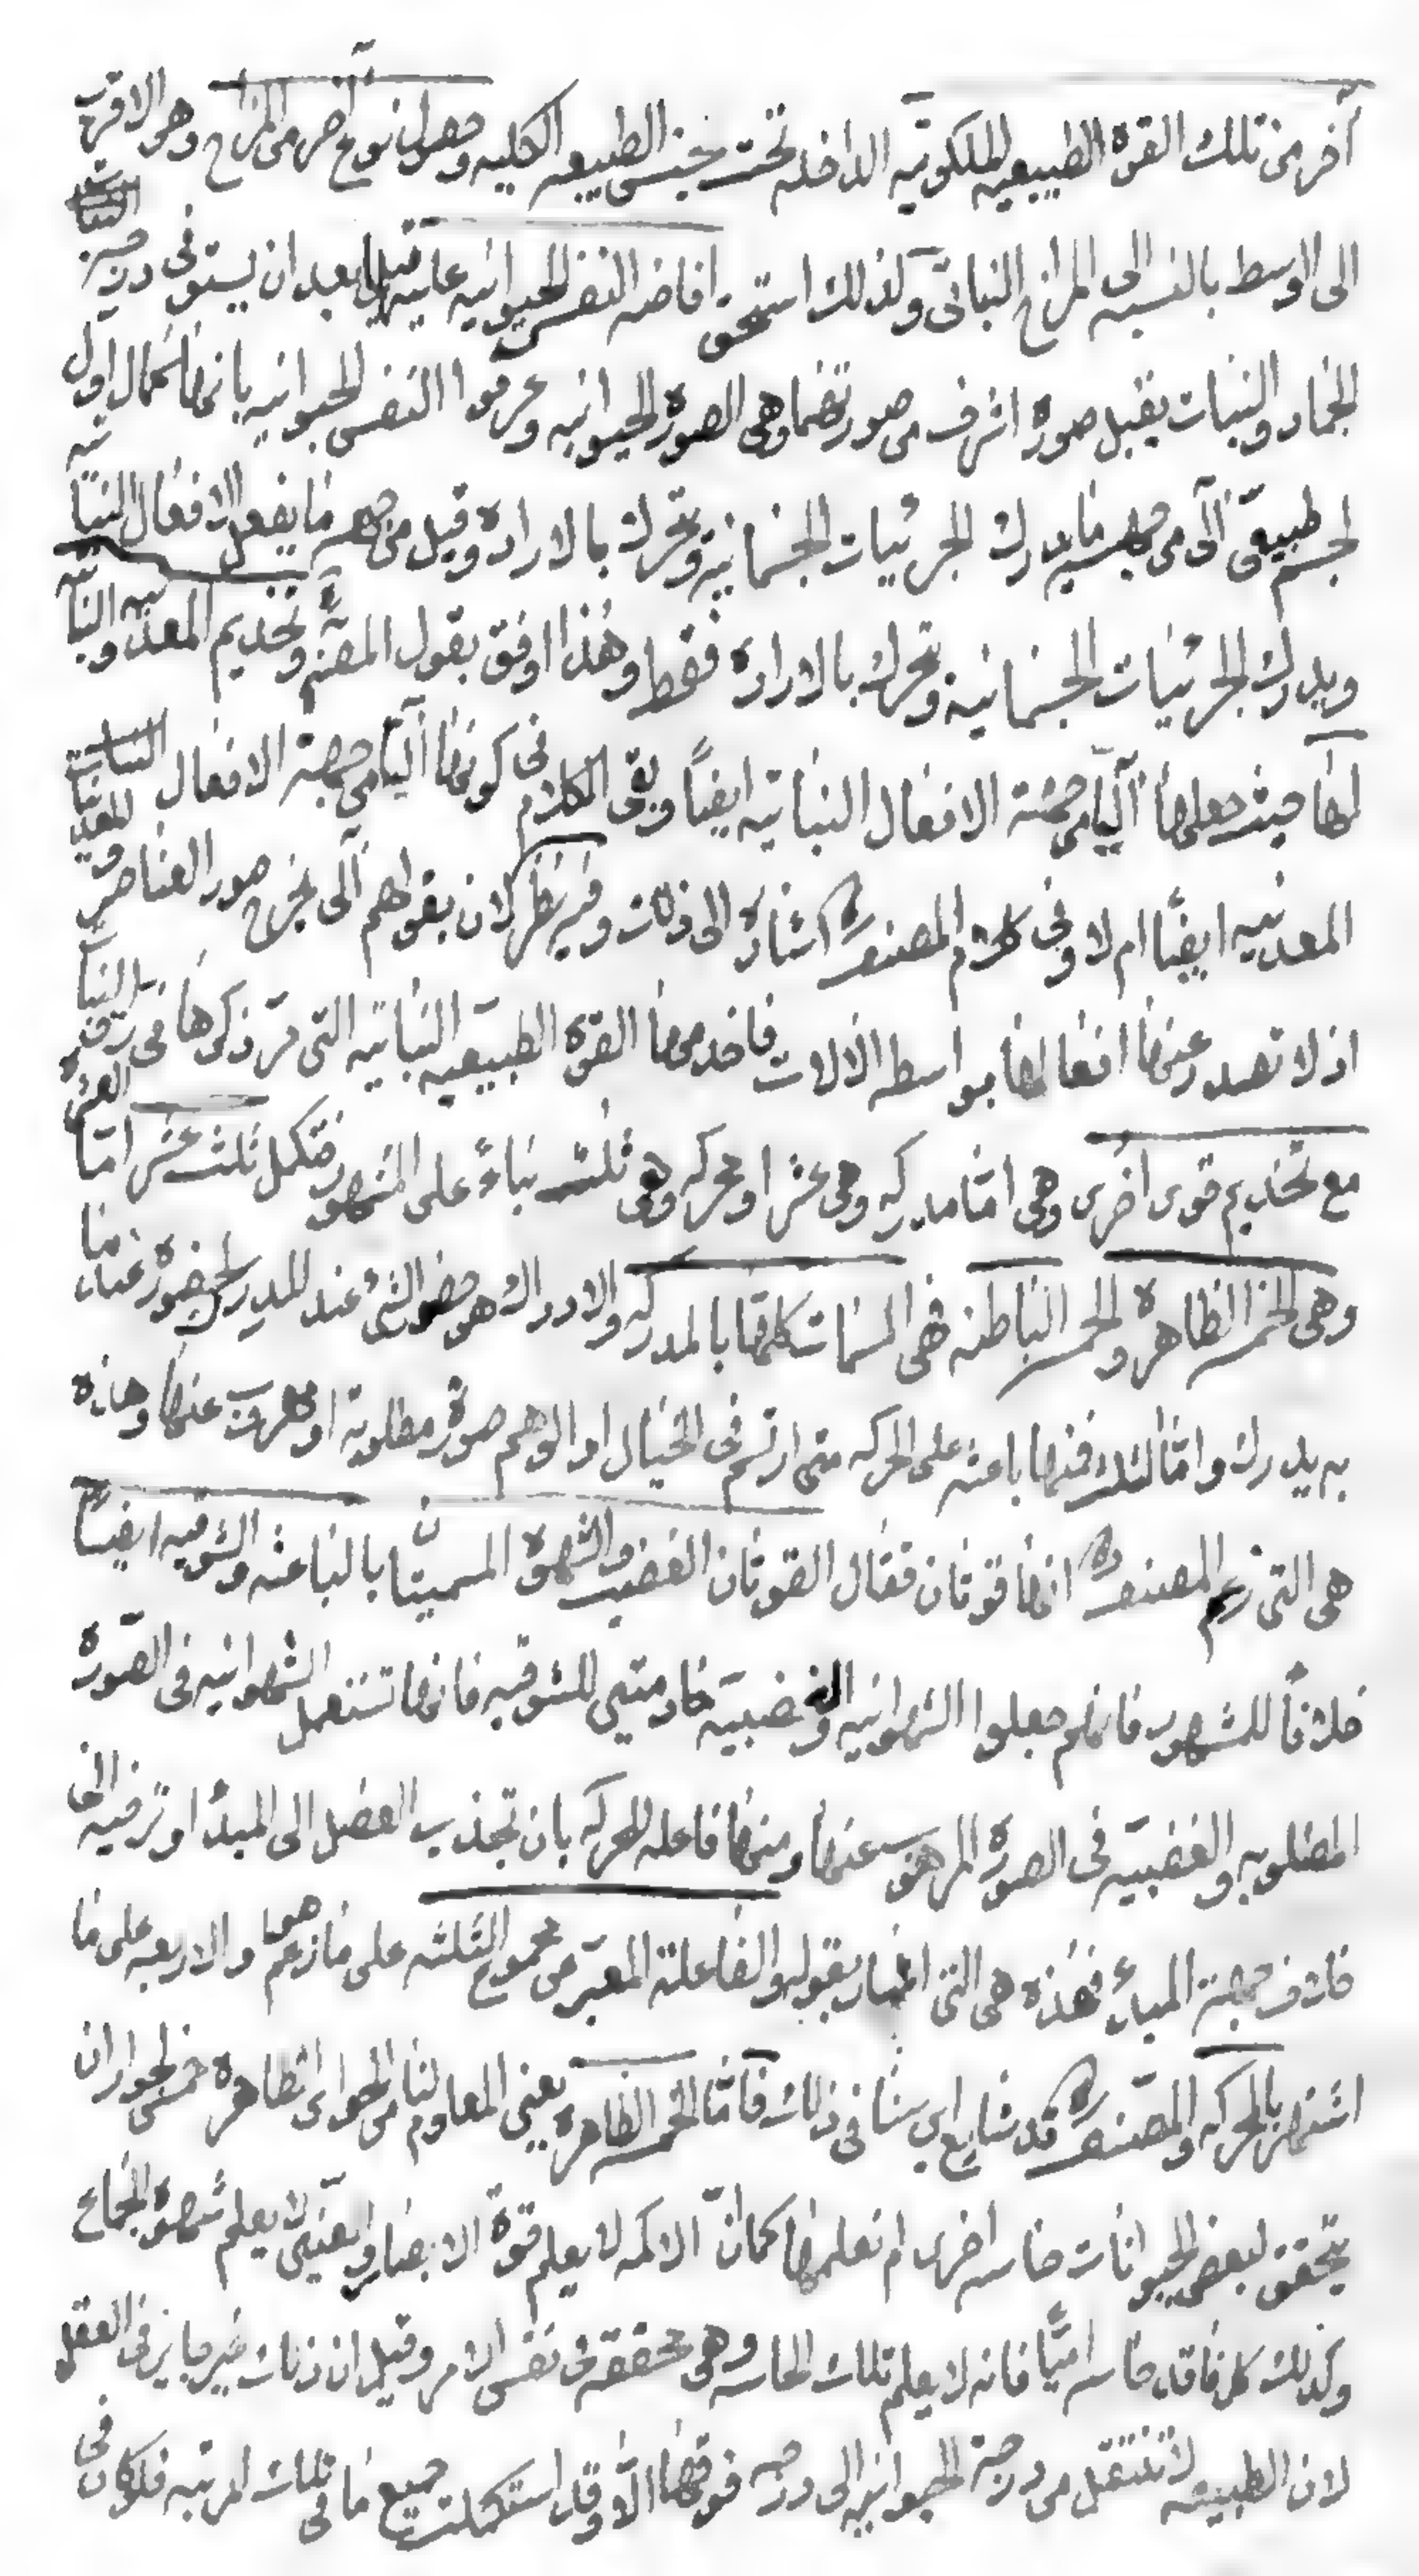 آخر من تلك القوة الطبيعيه الملكوتيه الداخله تحت جنس الطبيعه الكليه وحصول نوع اخر من المزاج وهو الاقرب
الى الوسط بالنسبه الى المزاج النباتى ولذلك استحق افاضه النفس الحيوانيه عليه بعد ان يستوفى درجه
الجماد والنبات يقبل صورة اشرف من صورتهما وهى الصورة الحيوانيه وعرفوا النفس الحيوانيه بانها كمال اول
لجسم طبيعى آلى من جهة ما يدرك الجزئيات الجسمانية وتحرك بالاراده وقيل من جهة ما يفعل الافعال النباتيه
ويدرك الجزئيات الجسمانية وتحرك بالاراده فقط وهذا اوفق بقول المصنف وتخديم المعدنيه والنباتيه
لها حيث جعلها آليا من جهة الافعال النباتيه ايضاً وبقى الكلام فى كونها آليا من جهة الافعال
المعدنيه ايضًا ام لا وفى كلام المصنف اشارة الى ذلك وفيه نظر لان بقولهم آلى يخرج صور العناصر والمعدنيات
اذ لا تصدر عنها افعالها بواسطه الالات فاخدمها القوة الطبيعيه النباتيه التى مر ذكرها فى تعريف النبات
مع تخديم قوى اخرى وهى امّا مدركه وهى عشر او محركه وهى ثلث بناءً على المشهور فتكل ثلث عشر امّا العشره
وهى الخمس الظاهره والخمس الباطنه فهى المسمات كلها بالمدركه والادراك هو حضور الشئ عند المدرك لحضوره عند ما
به يدرك وامّا الثلث فمنها باعثه على الحركه متى ارتسم فى الخيال او الوهم صورة مطلوبة او مهروب عنها وهذه
هى التى زعم المصنف انها قوتان فقال القوتان الغضب والشهوة المسميتان بالباعثه والشوقيه ايضًا
خلافاً للمشهور فانهم جعلوا الشهوانيه والغضبيه خادمتين للشوقيه فانها تستعمل الشهوانيه فى الصّورة
المطلوبه والغضبيه فى الصورة المرهوب عنها ومنها فاعله للحركه بان تجذب العضل الى المبدأ او ترخيه الى
خلاف جهة المبدء فهذه هى التى اشار بقوله والفاعلة المعبر عن مجموع الثلثه على ما زعم هو والاربعه على ما
اشتهر بالمحركه والمصنف قد شايع ابن سينا فى ذلك فامّا الخمس الظاهره يعنى المعلوم لنا من الحواس الظاهره خمس لجواز ان
يتحقق لبعض الحيوانات حاسه اخرى لم نعلمها كما انّ الاكمه لا يعلم قوة الابصار والعنين لا يعلم شهوة الجماع
وكذلك كل فاقد حاسه امّيًا فانه لا يعلم تلك الحاسه وهى محققة فى نفس الامر وقيل ان ذلك غير جايز فى العقل
لان الطبيعه لا تنتقل من درجة الحيوانيه الى درجه فوقها الّا وقد استكملت جميع ما فى تلك المرتبه فلو كان فى